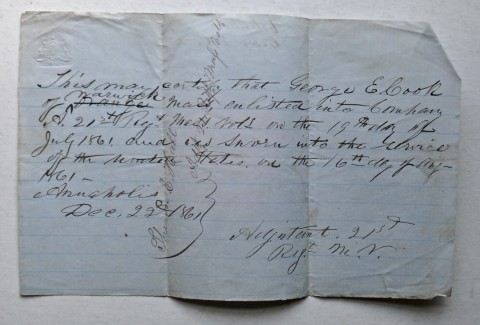 This may certify that George E. Cook
of Warwick Mass enlisted into Company
A. 21st Regt Mass Vols on the 19th day of
July 1861 and is sworn into the service
of the United States, on the 16th day of Aug
1861 –
Annapolis
Dec. 22d 1861
Adjutant, 21st
Regt M. V.